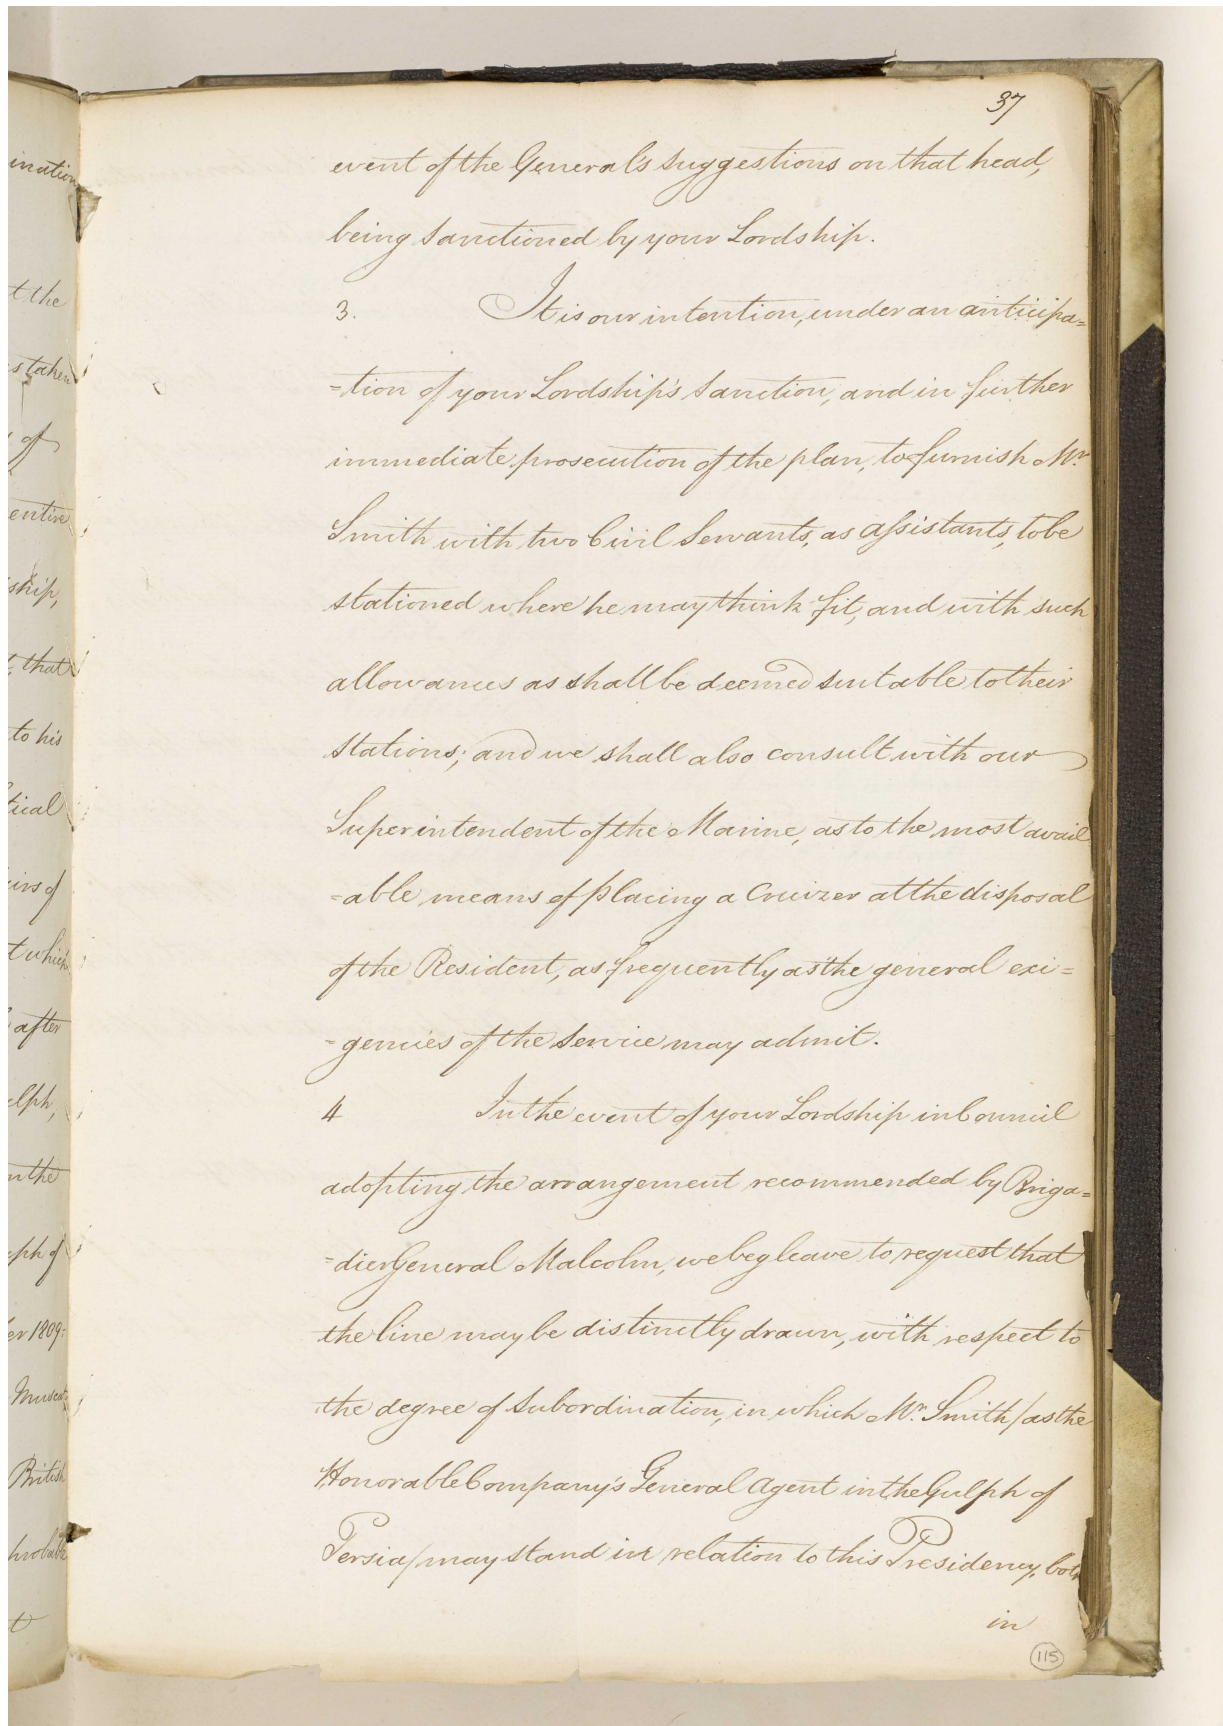 37
event of the General's suggestions on that head,
being sanctioned by your Lordship.
3. It is our intention, under an anticipa=
=tion of your Lordship's sanction, and in further
immediate prosecution of the plan, to furnish Mr.
Smith with two Civil Servants, as assistants, to be
stationed where he may think fit, and with such
allowances as shall be deemed suitable to their
stations; and we shall also consult with our
Superintendent of the Marine, as to the most avail
=able means of placing a Cruizer at the disposal
of the Resident, as frequently as the general exi=
=gencies of the Service may admit.
4 In the event of your Lordship in Council
adopting the arrangement recommended by Briga=
=dier General Malcolm, we beg leave to request that
the line may be distinctly drawn, with respect to
the degree of subordination, in which Mr. Smith /as the
Honorable Company's General Agent in the Gulph of
Persia/ may stand in relation to this Presidency, both
in
115
ination
t the
s taken
of
entire
ship,
that
to his
tical
irs of
t which
after
lph,
n the
ph of
er 1809:
Muscat
British
probable
t